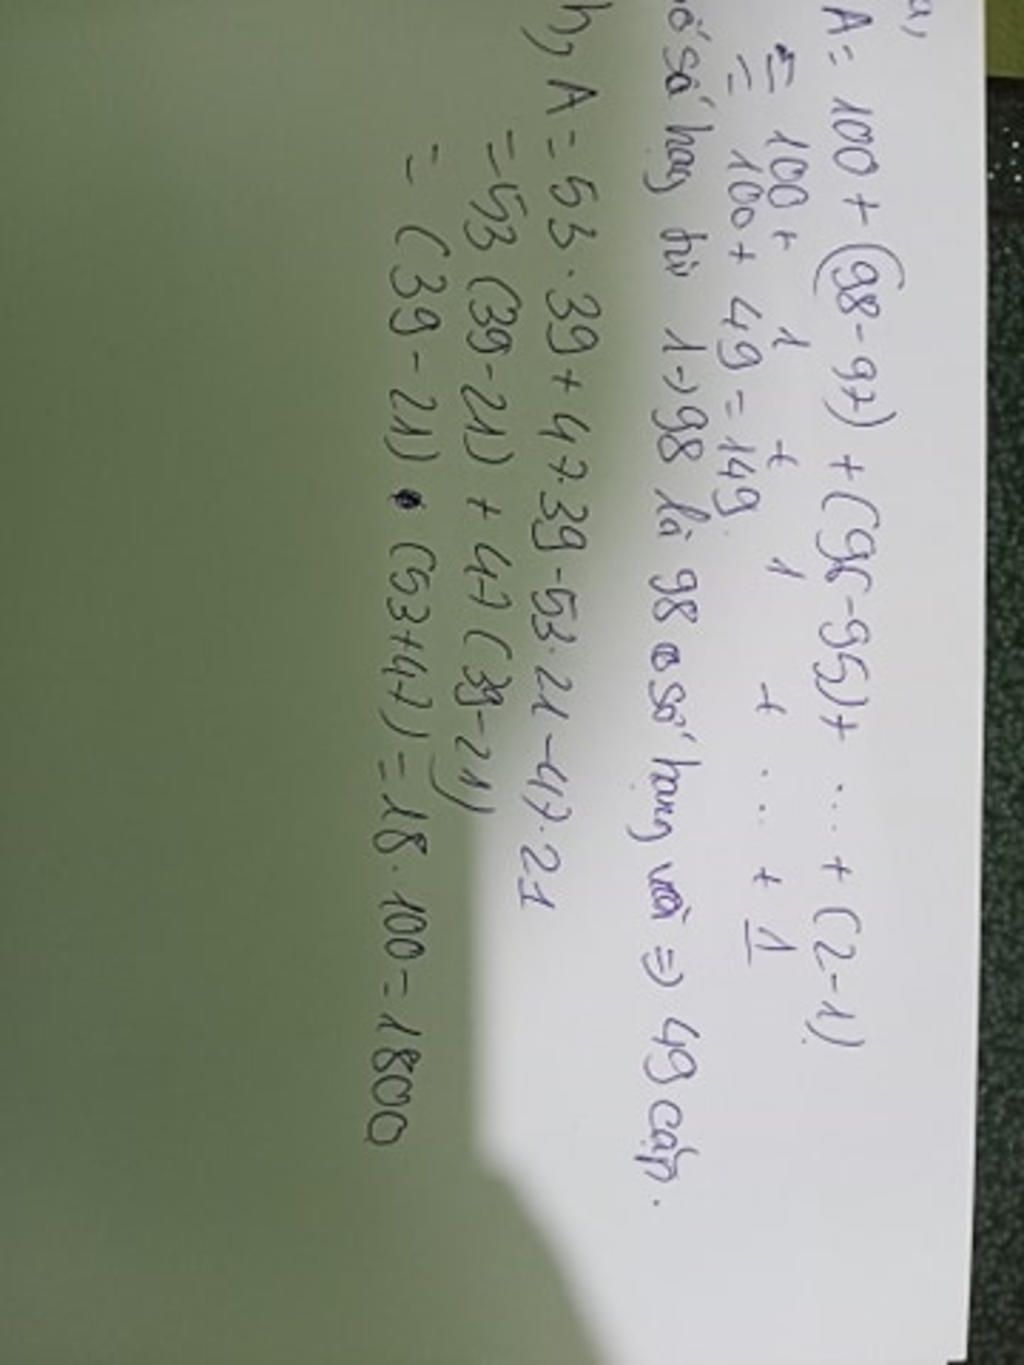 a,
A = 100 + (98-97) + (96-95) + ... + (2-1)
= 100 + 1 + 1 + ... + 1
= 100 + 49 = 149.
số hạng từ 1→98 là 98 số hạng và ⇒ 49 cặp.
h, A = 53.39 + 47.39-53.21-47.21
= 53 (39-21) + 47 (39-21)
= (39-21) . (53+47) = 18.100 = 1800